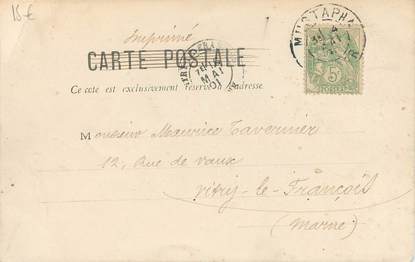 15 €
Imprimé
CARTE POSTALE
Ce côté est exclusivement réservé à l'adresse.
MUSTAPHA
MAI
5
Monsieur Maurice Tavernier
12, Rue de Vaux
Vitry-le-François
(Marne)